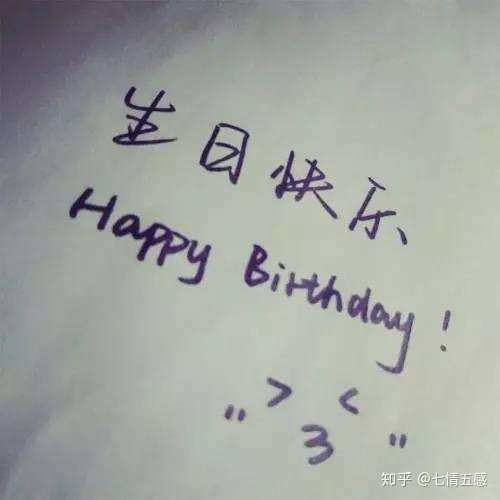 生日快乐
Happy Birthday!
> <
" 3 "
知乎 @七情五感